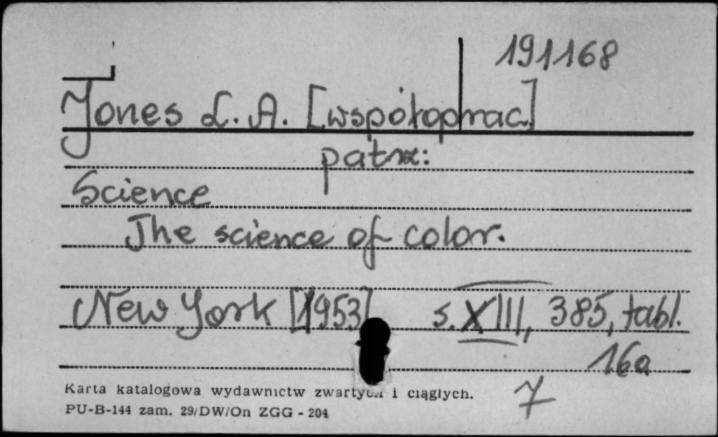 191168
Jones L. A. [współoprac.]
patrz:
Science
The science of color.
New York [1953] s. XIII, 385, tabl.
16a
7
Karta katalogowa wydawnictw zwartych i ciągłych.
PU-B-144 zam. 29/DW/On ZGG - 204